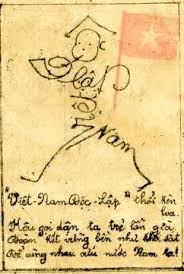 Độc
Lập
Việt
Nam
"Việt-Nam Độc-Lập" thổi kèn
loa.
Kêu gọi dân ta trẻ lẫn già
Đoàn kết vững bền như khối sắt
Để cùng nhau cứu nước Nam ta!